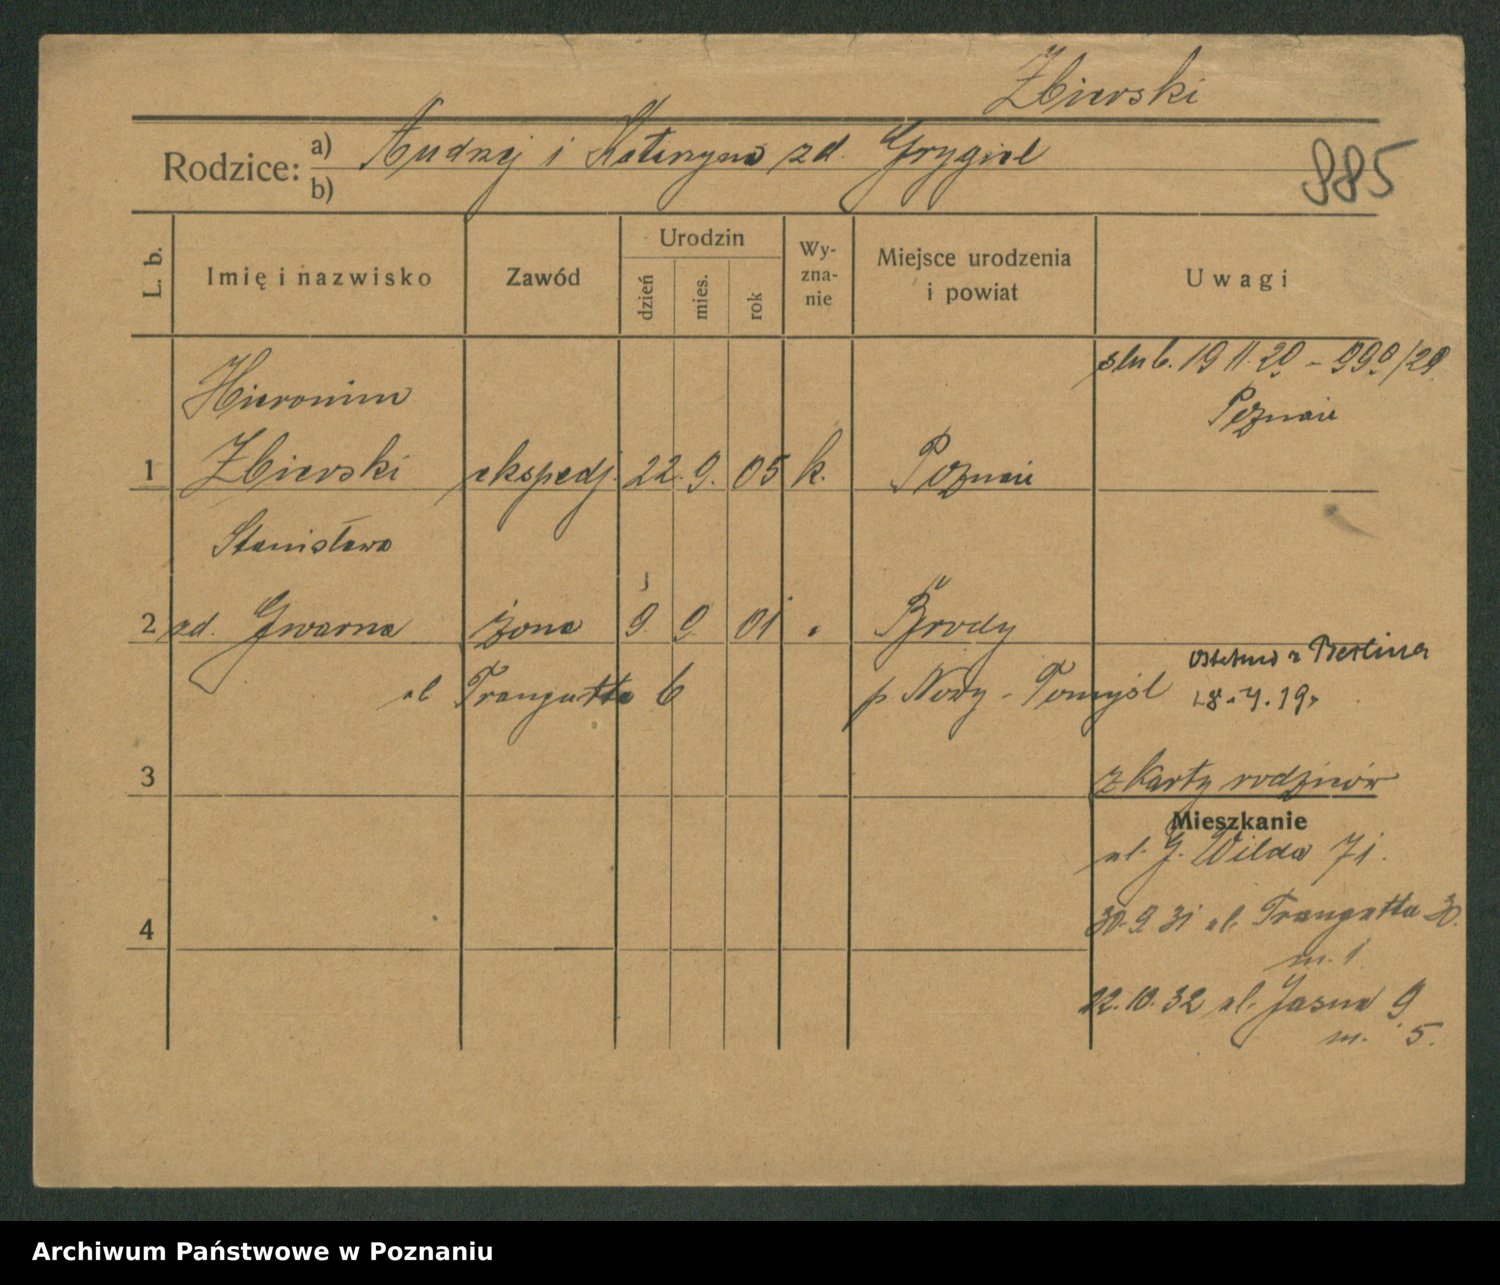 Zbierski
Rodzice: a) Andrzej i Katarzyna zd. Grygiel
b)
885
L. b.
Imię i nazwisko
Zawód
Urodzin
dzień
mies.
rok
Wy-
zna-
nie
Miejsce urodzenia
i powiat
Uwagi
ślub. 19 11. 29 - 990/29
Poznań
Hieronim
1 Zbierski ekspedj. 22. 9. 05 k. Poznań
Stanisława
2 zd. Gwarna żona 9. 9. 01 " Brody
ul Traugutta 6 p Nowy-Tomyśl
z Berlina
3
z karty rodziców
Mieszkanie
ul. G. Wilda 71.
4
30.9.31 ul. Traugutta 30.
m. 1.
22.10.32 ul. Jasna 9
m. 5.
Archiwum Państwowe w Poznaniu